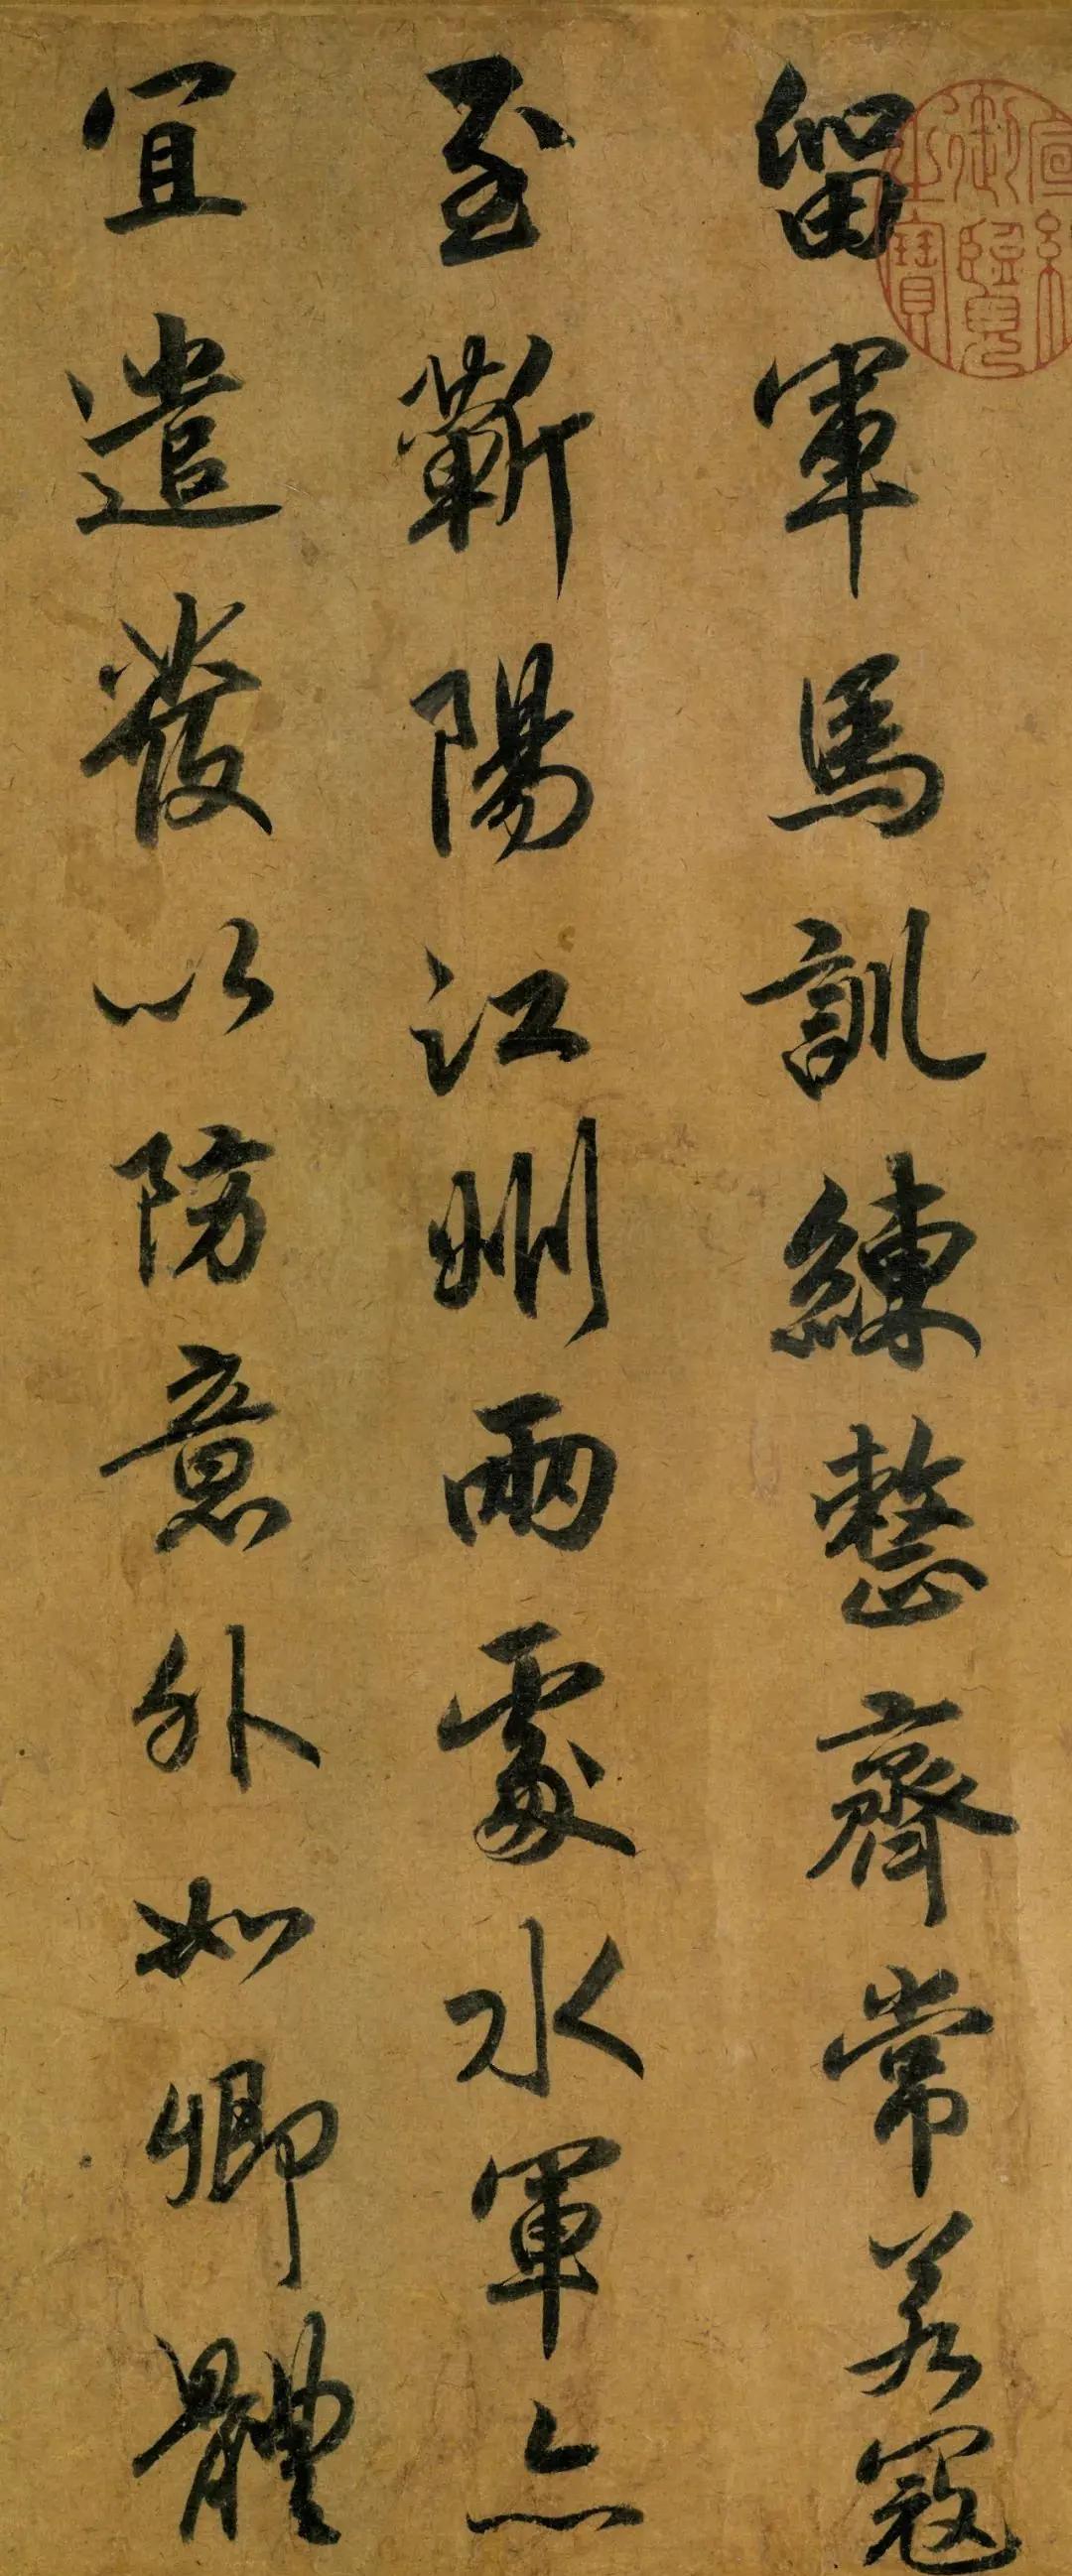 留軍馬訓練整齊常若寇
至蘄陽江州兩處水軍亦
宜遣發以防意外如卿體
宣統御覽之寶